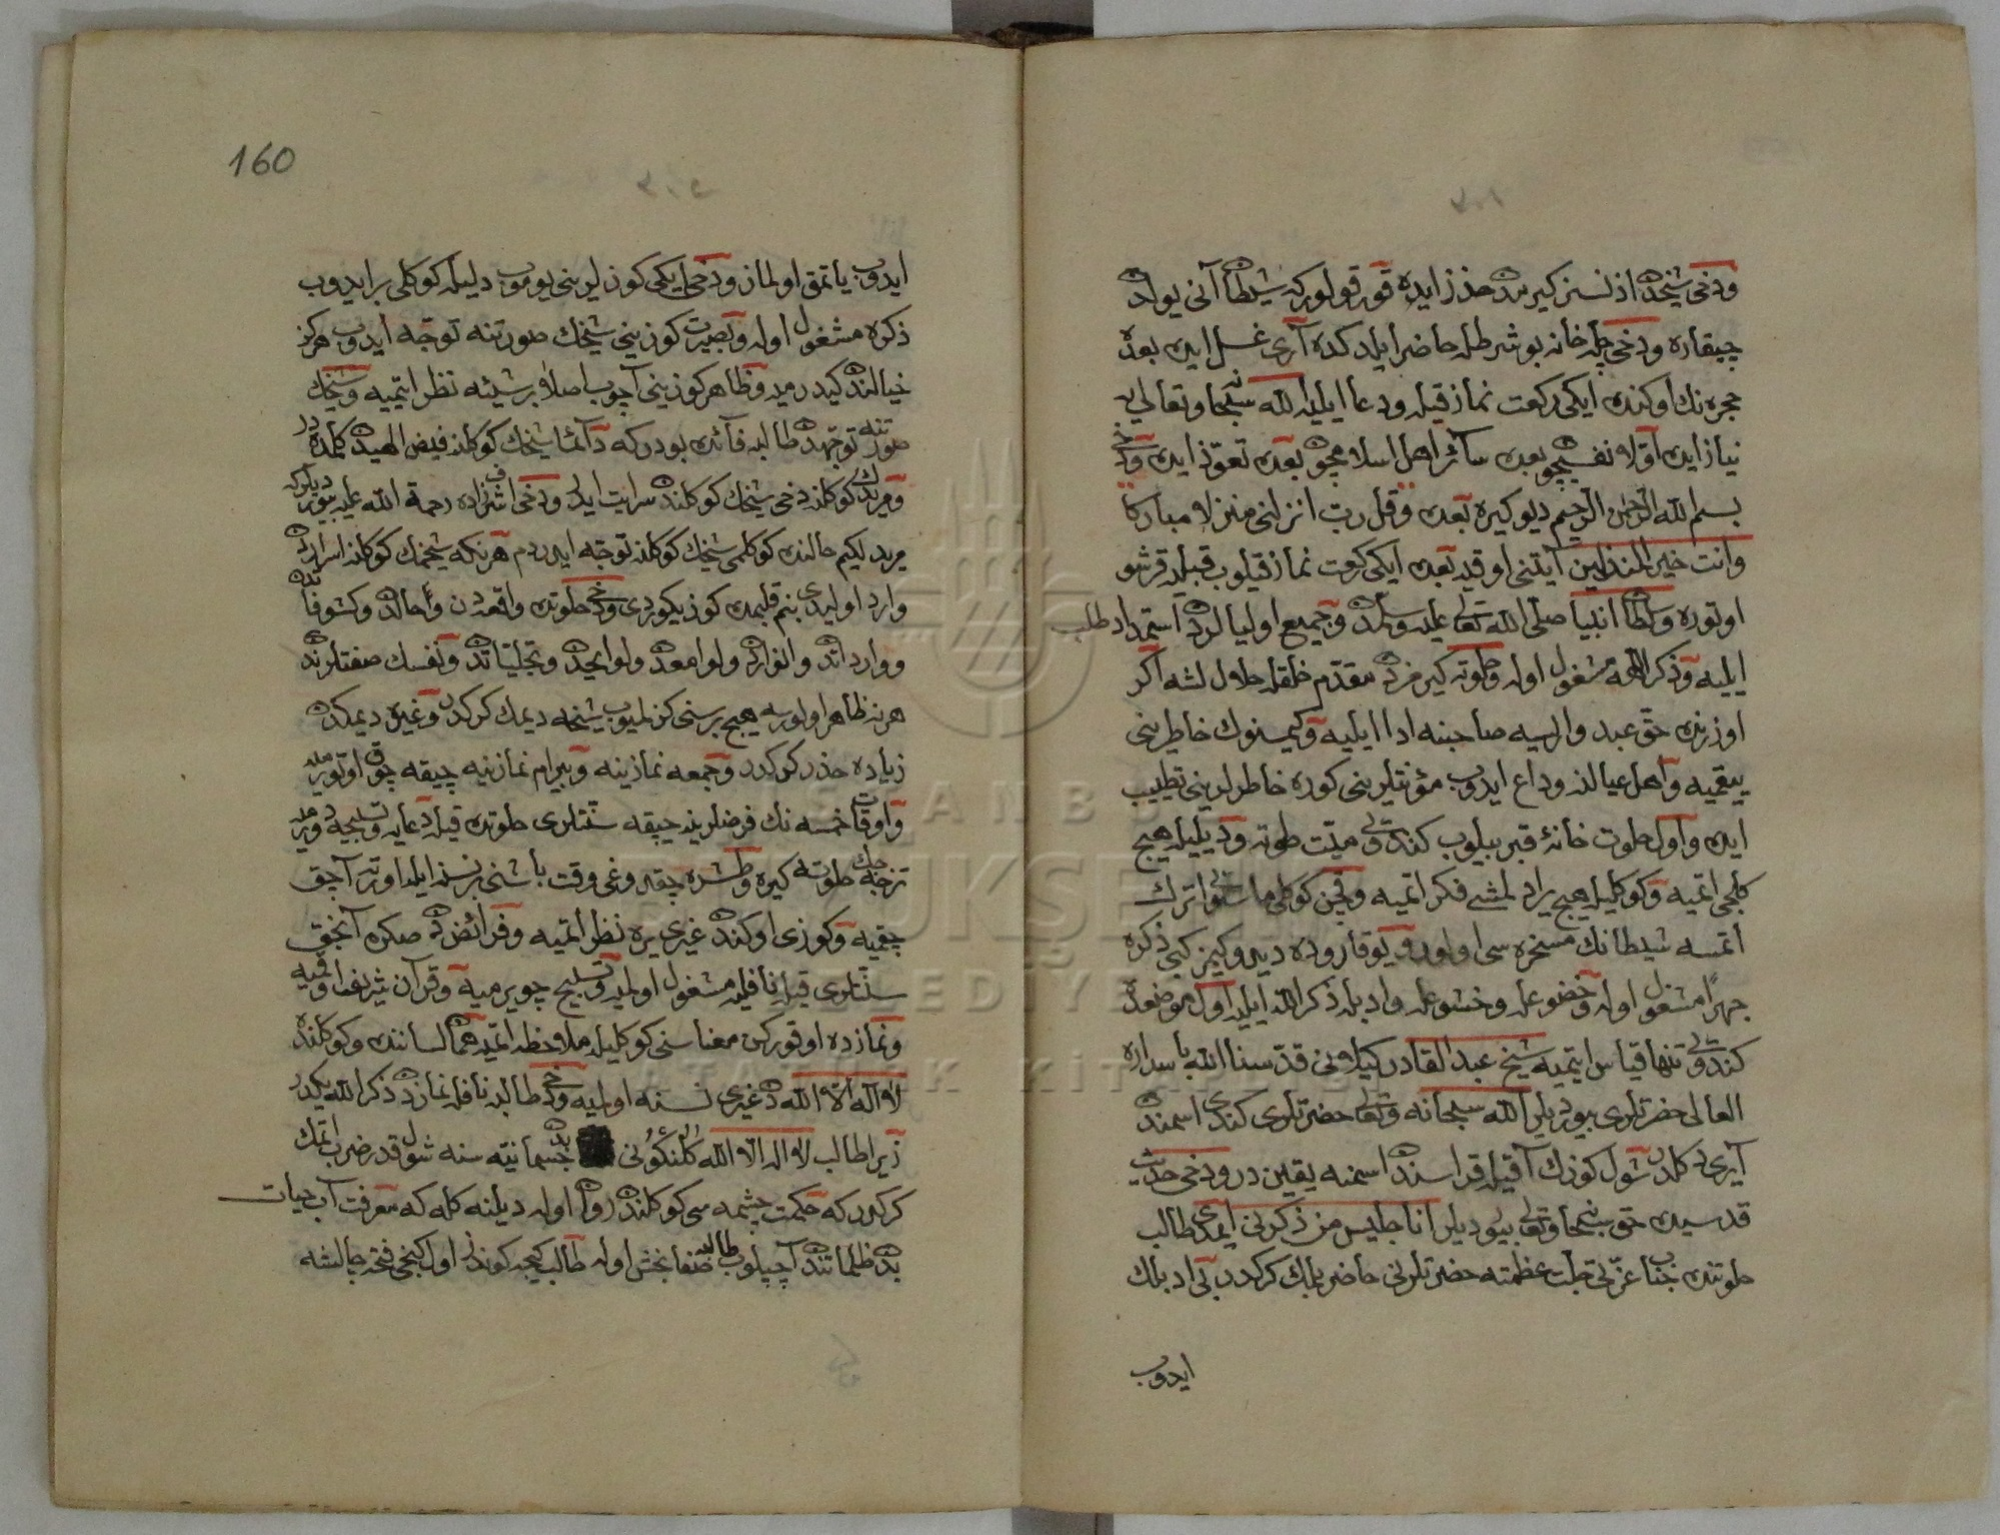 ودخی شیخدن اذنسز کیرمدن حذر ایده قورقولورکه شیطان آنی یولدن
چیقاره ودخی چله خانه بو شرطله حاضر ایلدکده آری غسل ایده بعده
حجره‌نك اوکنده ایکی رکعت نماز قیله ودعا ایلیه الله سبحانه وتعالی‌یه
نیاز ایده اولا نفسیچون بعده سائر اهل اسلامیچون بعده تعوذ ایده ودخی
بسم الله الرحمن الرحیم دیو کیره بعده وقل رب انزلنی منزلا مبارکا
وانت خیر المنزلین آیتنی اوقیه بعده ایکی رکعت نماز قیلوب قبله‌یه قرشو
اوتوره وسلطان انبیا صلی الله تعالی علیه وسلمدن وجمیع اولیالردن استمداد طلب
ایلیه وذکر اللهه مشغول اوله وخلوته کیرمزدن مقدم خلقله حلاللشه اکر
اوزرنده حق عبد وارایسه صاحبنه ادا ایلیه وکیمسنوك خاطرینی
ییقمیه واهل عیالنه وداع ایدوب مؤنتلرینی کوره خاطرلرینی تطییب
ایده واول خلوت خانۀ قبر بیلوب کندوی میت طوته ودیلیله هیچ
کلجی اتمیه وکوکلیله هیچ یرادلمشی فکر اتمیه وقچن کوکلی ماسوایی ترك
اتمسه شیطانك مسخره‌سی اولور ویوقارو ده دیدوکیمز کبی ذکره
جهرا مشغول اوله وخضوعله وخشوعله وادبله ذکر الله ایلیه اول موضعده
کندوی تنها قیاس ایتمیه شیخ عبد القادر کیلانی قدسنا الله باسراره
العالی حضرتلری بیوردیلر الله سبحانه وتعالی حضرتلری کندی اسمندن
آیری دکلدر شول کوزك آقیله قراسندن اسمنه یقین در ودخی حدیث
قدسیده حق سبحانه وتعالی بیوردیلر انا جلیس من ذکرنی ایمدی طالب
خلوتنده جناب عزتی جلت عظمته حضرتلرنی حاضر بلك کرکدر بی ادبلك
ایدوب
160
ایدوب یاتمق اولماز ودخی ایکی کوزلرینی یوموب دلیله کوکلی بر ایدوب
ذکره مشغول اوله وبصیرت کوزینی شیخك صورتنه توجه ایدوب هرکز
خیالندن کیدرمیه وظاهر کوزینی آچوب اصلا بر شیئه نظر ایتمیه وشیخك
صورتنه توجهدن طالبه فائده بودرکه دائما شیخك کوکلنه فیض الهیدن کلمده در
ومریدك کوکلنه دخی شیخك کوکلندن سرایت ایدر ودخی اشرف زاده رحمة الله علیه بیوردیلرکه
مرید لکیم حالنده کوکلمی شیخك کوکلنه توجه ایدردم هرنکه شیخمك کوکلنه اسراردن
وارد اولیدی بنم قلبمك کوزی کوردی ودخی خلوتده واقعه‌دن واحالدن وکشوفاتدن
ووارداتدن وانواردن ولوامعدن ولوایحدن وتجلیاتدن ونفسك صفتلرندن
هرنه ظاهر اولورسه هیچ برسنی کزلمیوب شیخنه دیمك کرکدر وغیره دیمکدن
زیاده حذر کرکدر وجمعه نمازینه وبیرام نمازینه چیقه چوق اوتورمیه
واوقات خمسه‌نك فرضلرینه چیقه سنتلری خلوتده قیله دعایه وتسبیحه دورمیه
ترجك خلوته کیره وطشره چقدوغی وقت باشنی برنسنه ایله اورته آچق
چقمیه وکوزی اوکندن غیری یره نظر اتمیه وفرائضدن صکره آنجق
سنتلری قیله نافله مشغول اولمیه وتسبیح چویرمیه وقرآن شریف اوقمیه
ونمازده اوقورکن معناسنی کوکلیله ملاحظه اتمیه هما لسانندن وکوکلندن
لا اله الا الله دن غیری نسنه اولمیه ودخی طالبه نافله نمازدن ذکر الله یکدر
زیرا طالب لا اله الا الله کلنکونی بدن جسمانیته‌سنه شول قدر ضرب اتمك
کرکدرکه حکمت چشمه‌سی کوکلندن روان اوله دیلنه کله که معرفت آب حیات
بدن ظلماتندن آچیلوب طالبه صفا بخش اوله طالب کیجه کوندز اول کنجی فتحه چالشه